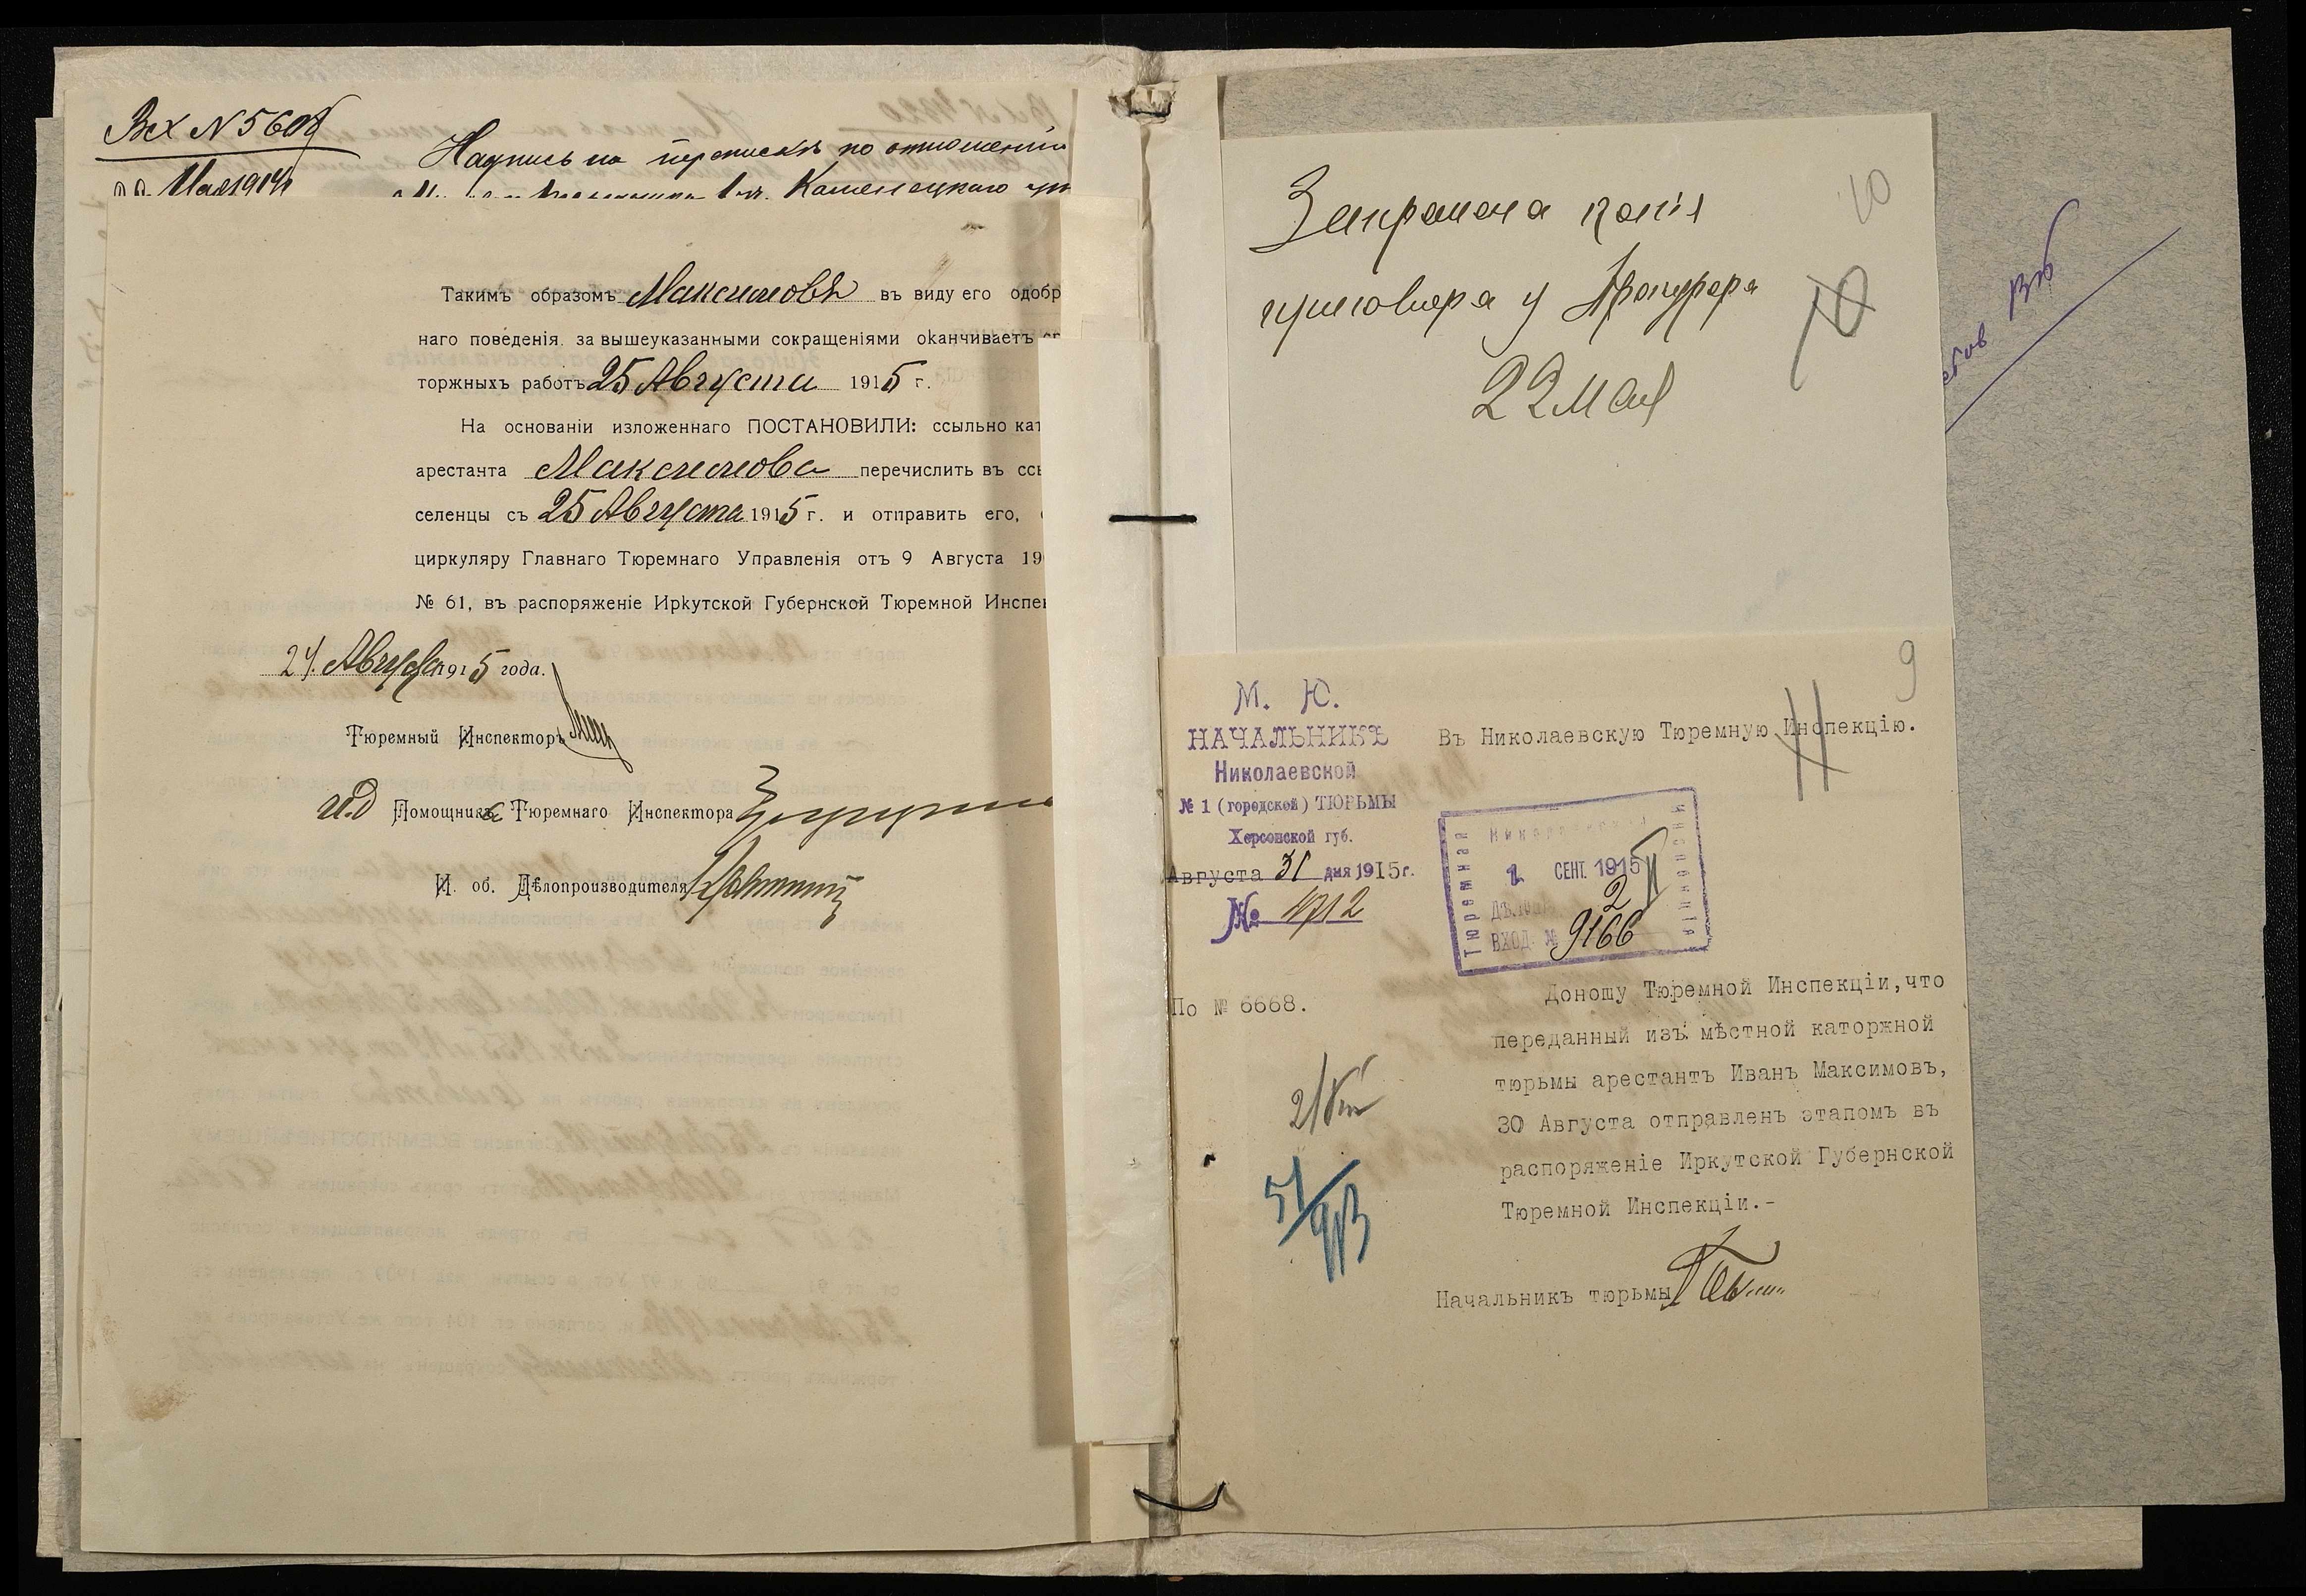 Вх N 5608
Мая 1914
Надпись на перепискѣ по отношенію
Каменецкаго
Такимъ образомъ Максимовъ въ виду его одобр
наго поведенія, за вышеуказанными сокращеніями оканчиваетъ
торжныхъ работъ 25 Августа 1915 г.
На основаніи изложеннаго ПОСТАНОВИЛИ: ссыльно кат
арестанта Максимова перечислить въ ссы
селенцы съ 25 Августа 1915 г. и отправить его,
циркуляру Главнаго Тюремнаго Управленія отъ 9 Августа 19
№ 61, въ распоряженіе Иркутской Губернской Тюремной Инспек
24 Августа 1915 года.
Тюремный Инспекторъ
И.д Помощника Тюремнаго Инспектора
И. об. Дѣлопроизводителя
10
Запрошена копія
приговора у Прокурора
10
22 мая
9
М. Ю.
НАЧАЛЬНИКЪ
Николаевской
№ 1 (городской) ТЮРЬМЫ
Херсонской губ.
Августа 31 дня 1915 г.
№ 4712
Въ Николаевскую Тюремную Инспекцію.
Николаевская
Тюремная
Инспекція
1 СЕНТ. 1915
2
ВХОД. № 9166
По № 6668.
Доношу Тюремной Инспекціи, что
переданный изъ мѣстной каторжной
тюрьмы арестантъ Иванъ Максимовъ,
30 Августа отправленъ этапомъ въ
распоряженіе Иркутской Губернской
Тюремной Инспекціи.-
Начальникъ тюрьмы